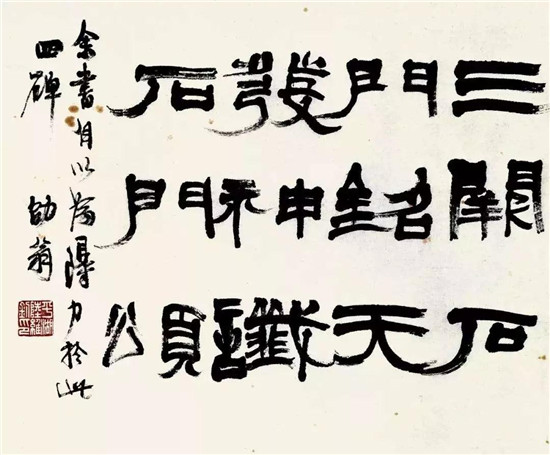 三闕石
門銘天
發神讖
石門頌
余書自以為得力於此
四碑 劭翁